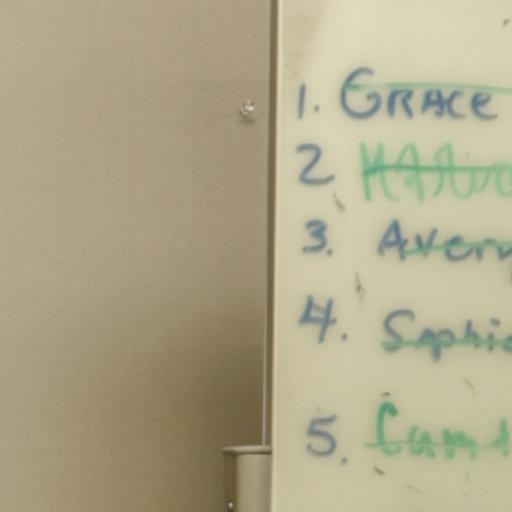 1. GRACE
2
3. Avery
4. Sophi
5.